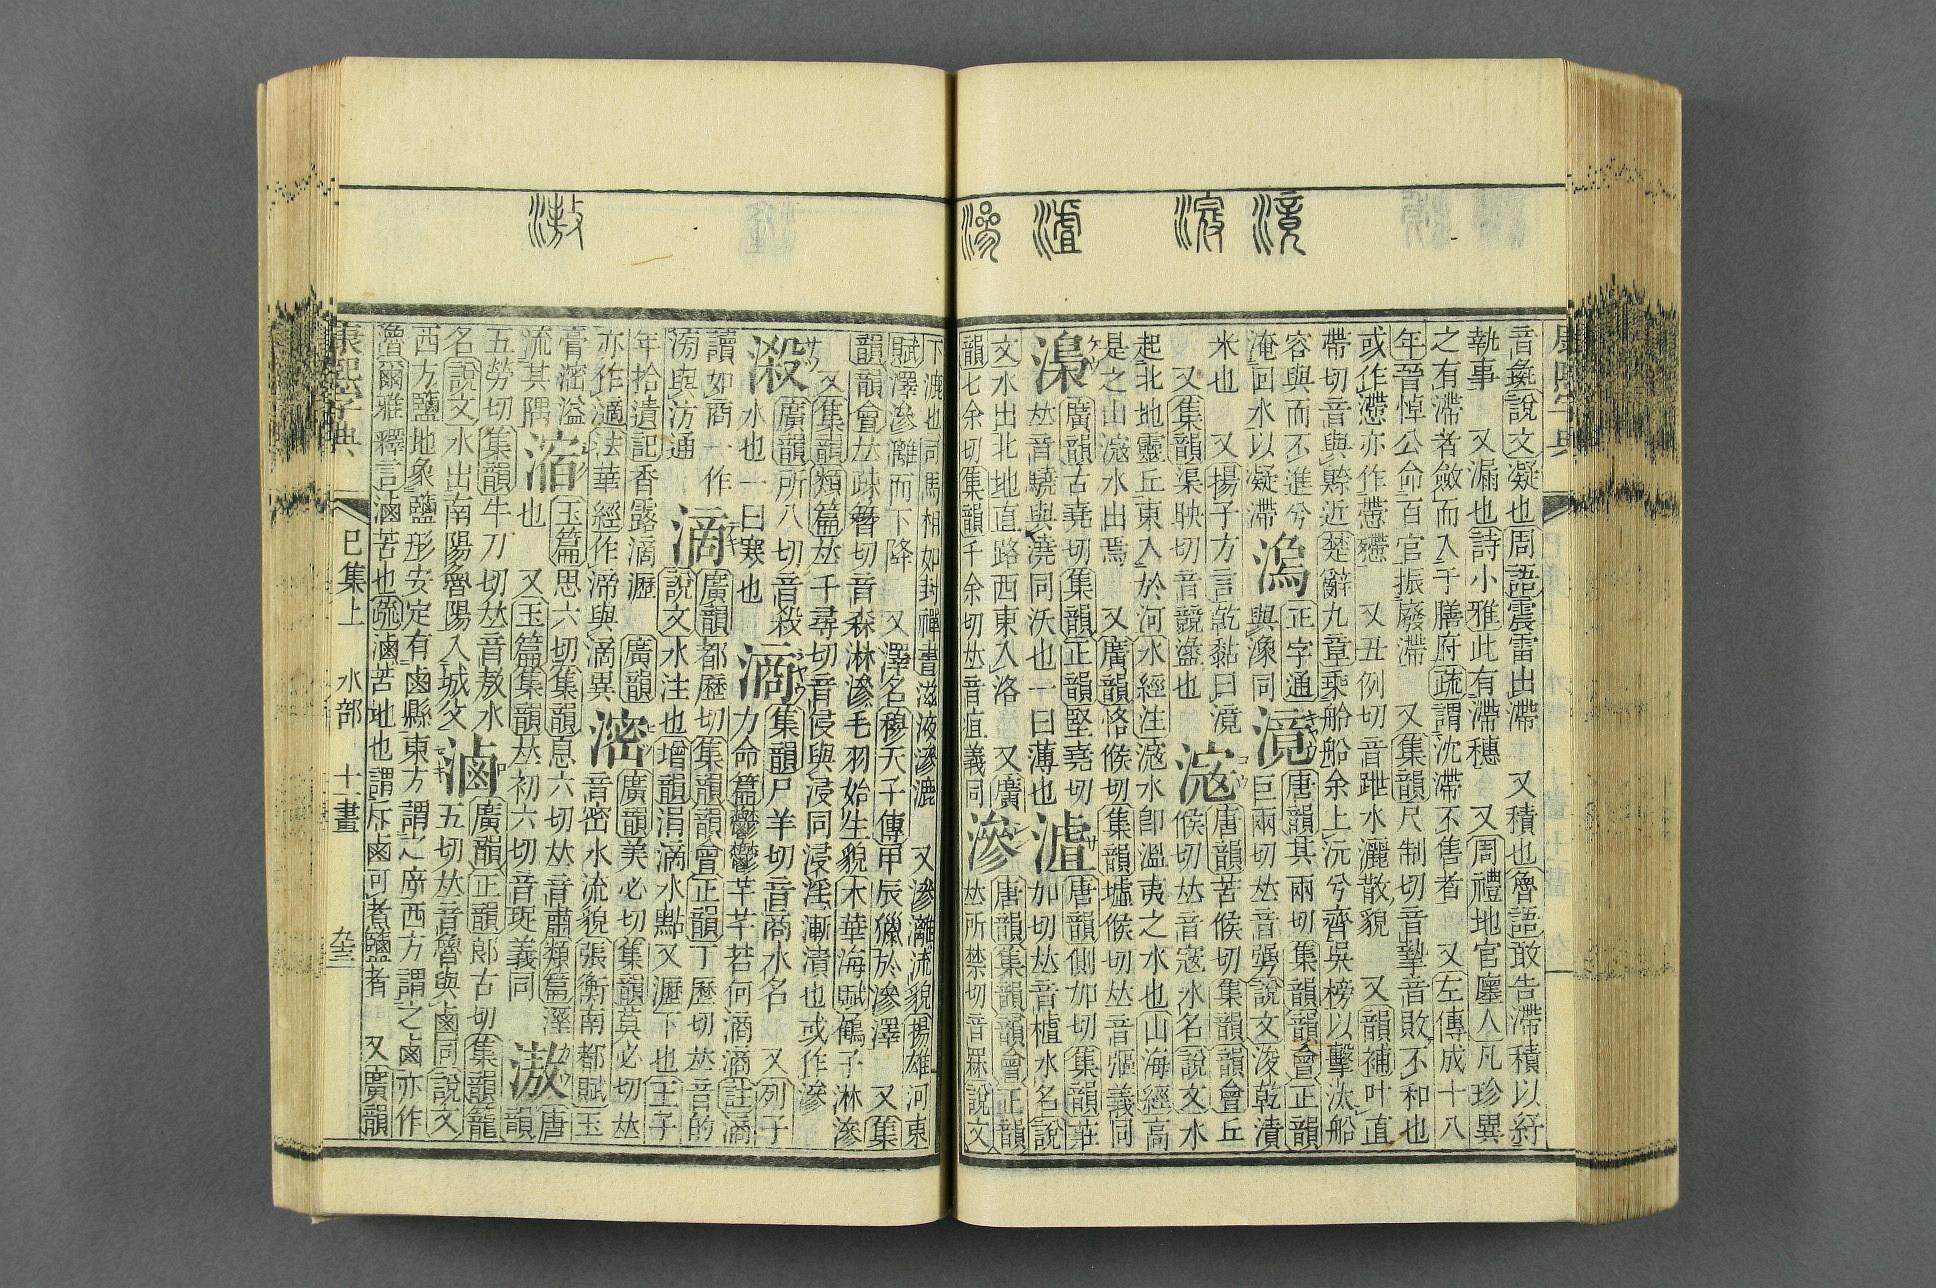 音彘說文凝也周語震雷出滯 又積也魯語敢告滯積以紓
執事 又漏也詩小雅此有滯穗 又周禮地官廛人凡珍異
之有滯者斂而入于膳府疏謂沈滯不售者 又左傳成十八
年晉悼公命百官振廢滯 又集韻尺制切音掣音敗不和也
或作懘亦作 又丑例切音跇水灑散貌 又韻補叶直
帶切音與縣近楚辭九章乘船船余上沅兮齊吳榜以擊汰船
容與而不進兮
淹回水以凝滯
正字通
與潒同
滰
唐韻其兩切集韻韻會正韻
巨兩切𠀤音勥說文浚乾漬
米也 又揚子方言乾黏曰滰
又集韻渠映切音競 也
滱
唐韻苦候切集韻韻會丘
候切𠀤音寇水名說文水
起北地靈丘東入於河水經注滱水卽溫夷之水也山海經高
是之山滱水出焉 又廣韻恪候切集韻墟候切𠀤音彄義同
廣韻古堯切集韻正韻堅堯切
𠀤音驍與澆同沃也一曰薄也
唐韻側加切集韻莊
加切𠀤音樝水名說
文水出北地直路西東入洛 又廣
韻七余切集韻千余切𠀤音疽義同
滲
唐韻集韻韻會正韻
𠀤所禁切音罧說文
下漉也司馬相如封禪書滋液滲漉 又滲灕流貌揚雄河東
賦澤滲灕而下降 又澤名穆天子傳甲辰獵於滲澤 又集
韻韻會𠀤疎簪切音森淋滲毛羽始生貌木華海賦鶴子淋滲
又集韻類篇𠀤千尋切音侵與浸同浸淫漸漬也或作滲
廣韻所八切音殺
水也一曰寒也
滳
集韻尸羊切音商水名 又列子
力命篇鬱鬱芊芊若何滴滴註滴
讀如商 一作
滂與汸通
滴
廣韻都歷切集韻韻會正韻丁歷切𠀤音的
說文水注也增韻涓滴水點 又瀝下也王子
年拾遺記香露滴瀝 廣韻
亦作適法華經作渧與滴異
滵
廣韻美必切集韻莫必切𠀤
音密水流貌張衡南都賦玉
膏滵溢
流其隅
滀
玉篇思六切集韻息六切𠀤音肅類篇
也 又玉篇集韻𠀤初六切音珿義同
滶
唐韻
五勞切集韻牛刀切𠀤音敖水
名說文水出南陽魯陽入城父
滷
廣韻正韻郎古切集韻籠
五切𠀤音魯與鹵同說文
西方鹽地象鹽形安定有鹵縣東方謂之㡿西方謂之鹵亦作
爾雅釋言滷苦也疏滷苦地也謂斥鹵可煮鹽者 又廣韻
康熙字典
巳集上 水部 十一畫